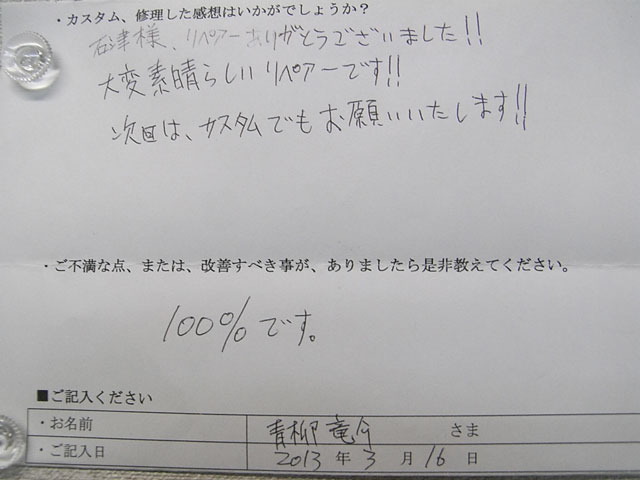 ・カスタム、修理した感想はいかがでしょうか？
石津様、リペアーありがとうございました!!
大変素晴らしいリペアーです!!
次回は、カスタムでもお願いいたします!!
・ご不満な点、または、改善すべき事が、ありましたら是非教えてください。
100%です。
■ご記入ください
・お名前 青柳 竜介 さま
・ご記入日 2013 年 3 月 16 日